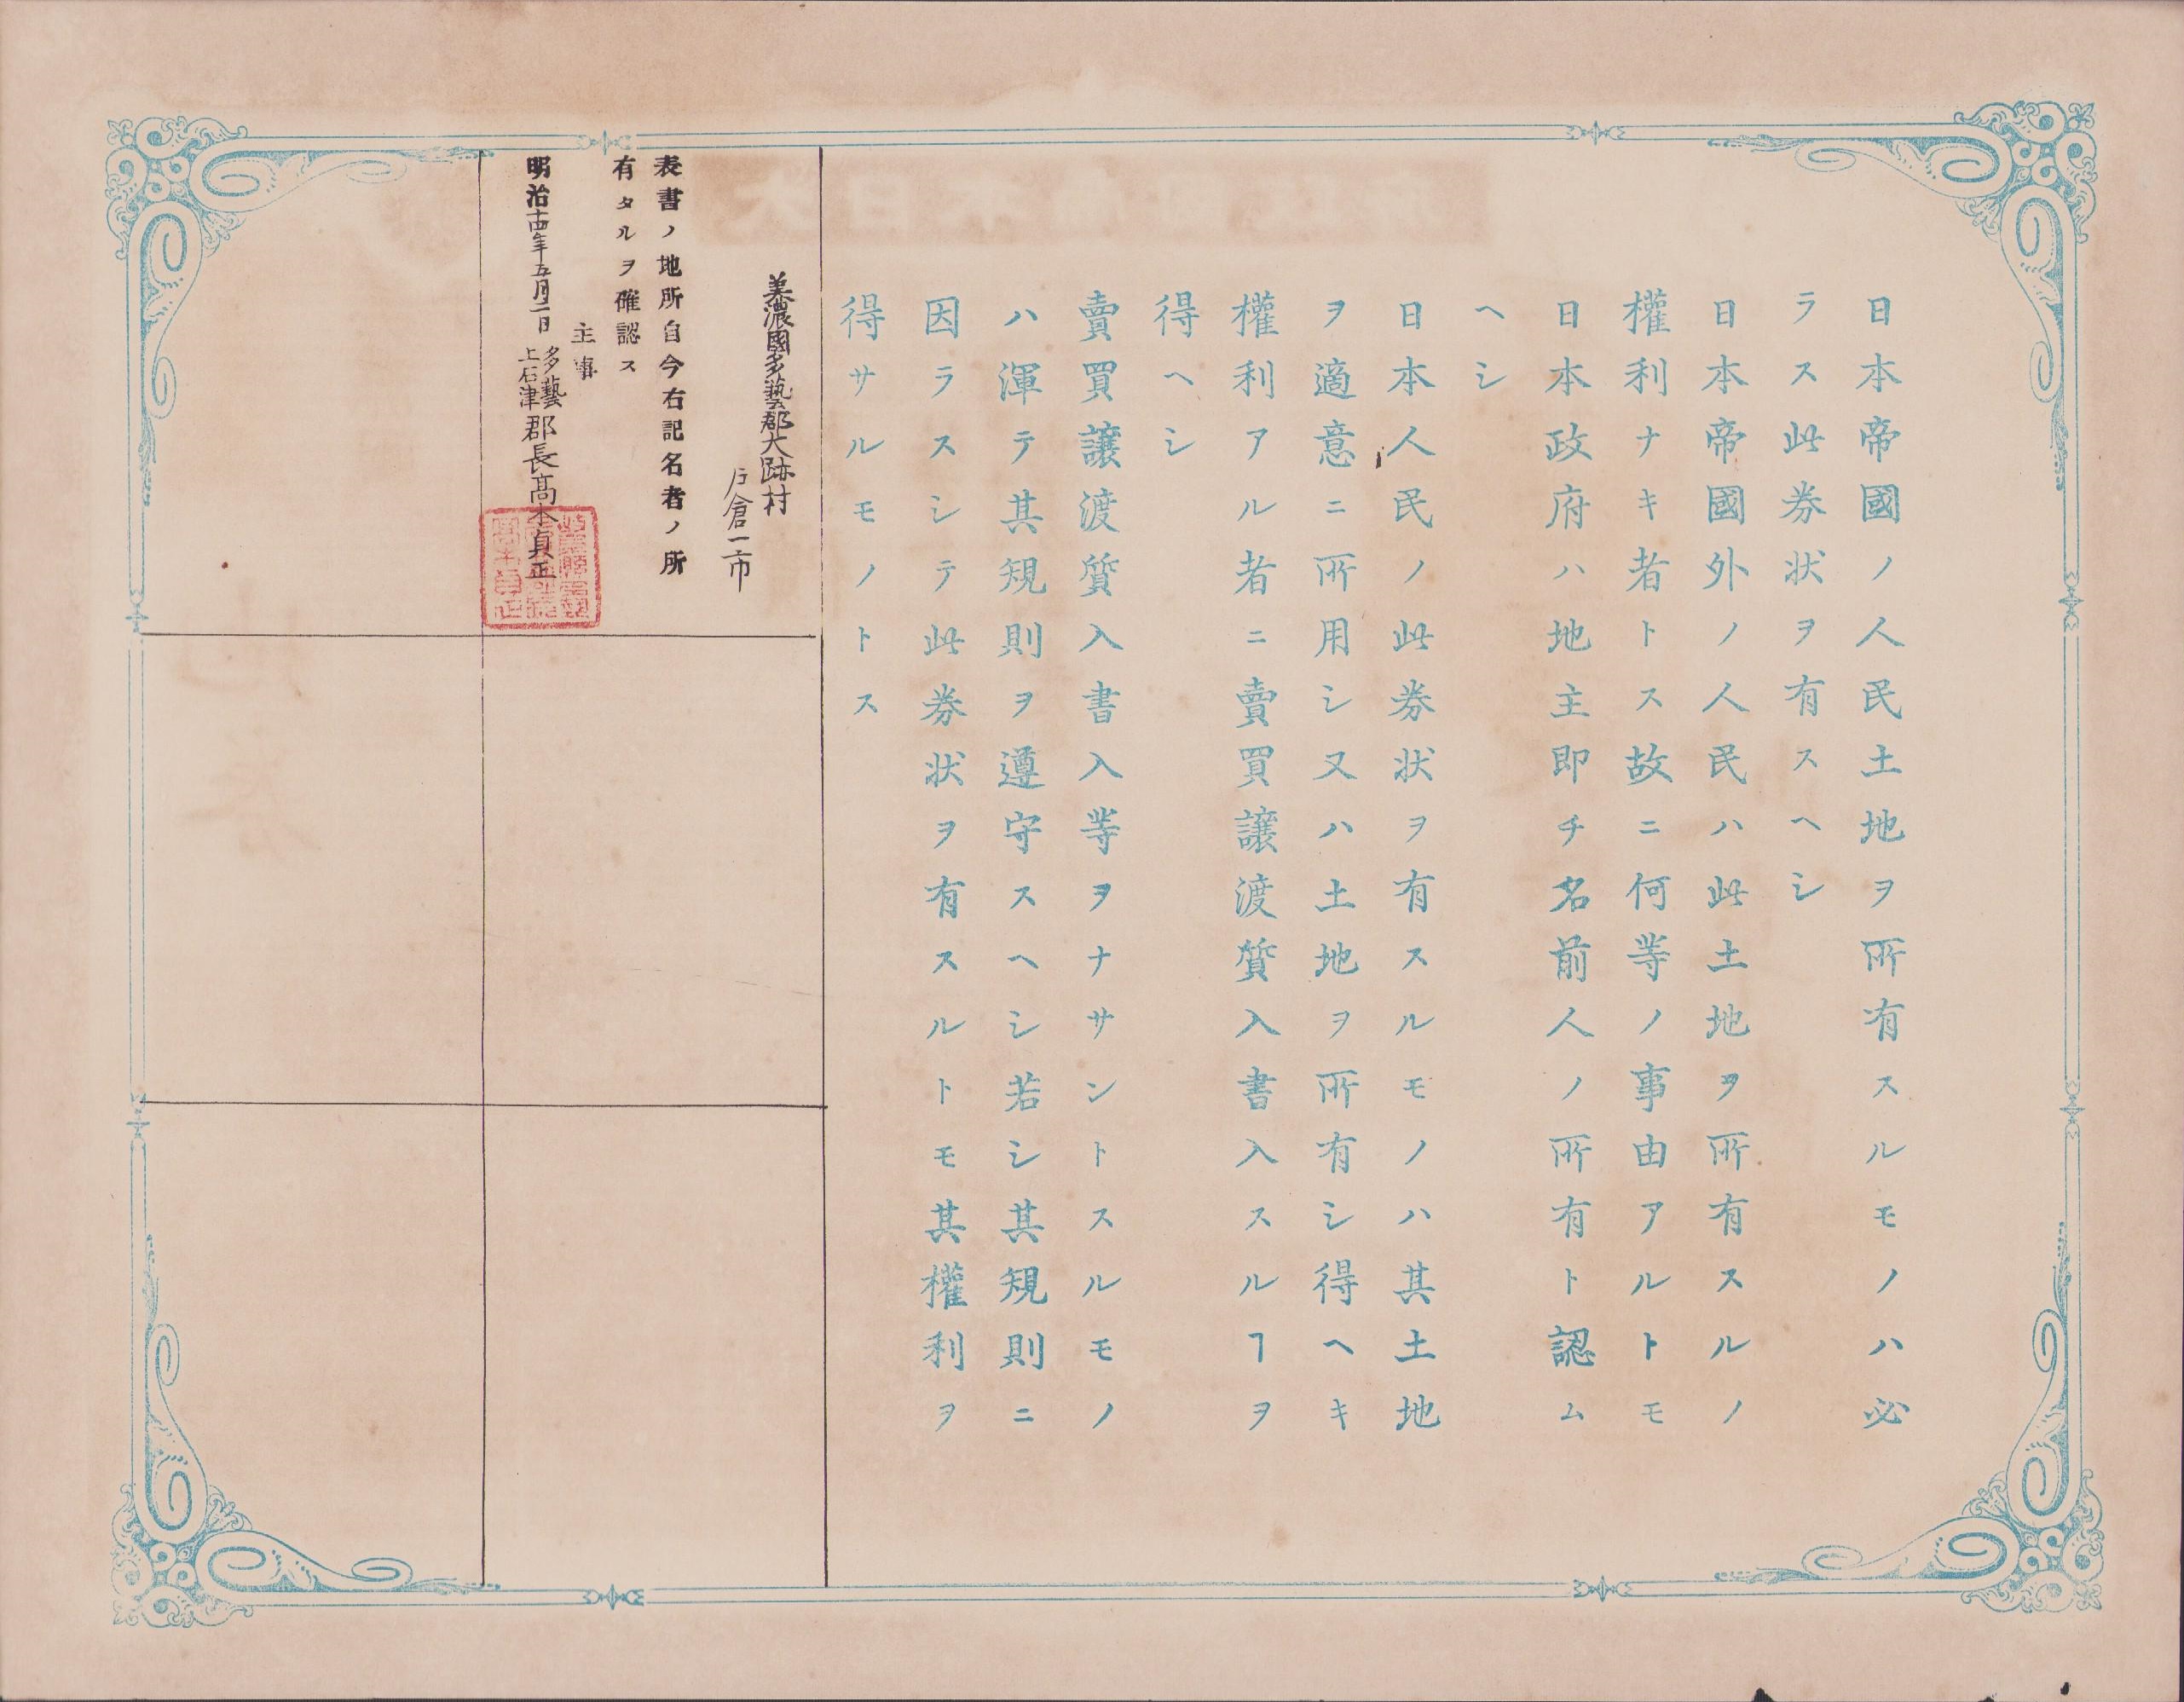 日本帝國ノ人民土地ヲ所有スルモノハ必
ラス此券状ヲ有スヘシ
日本帝國外ノ人民ハ此土地ヲ所有スルノ
權利ナキ者トス故ニ何等ノ事由アルトモ
日本政府ハ地主即チ名前人ノ所有ト認ム
ヘシ
日本人民ノ此券状ヲ有スルモノハ其土地
ヲ適意ニ所用シ又ハ土地ヲ所有シ得ヘキ
權利アル者ニ賣買譲渡質入書入スルヿヲ
得ヘシ
賣買譲渡質入書入等ヲナサントスルモノ
ハ渾テ其規則ヲ遵守スヘシ若シ其規則ニ
因ラスシテ此券状ヲ有スルトモ其權利ヲ
得サルモノトス
美濃國多藝郡大跡村
戸倉一市
表書ノ地所自今右記名者ノ所
有タルヲ確認ス
主事
明治十四年五月二日
多藝
上石津
郡長高木貞正